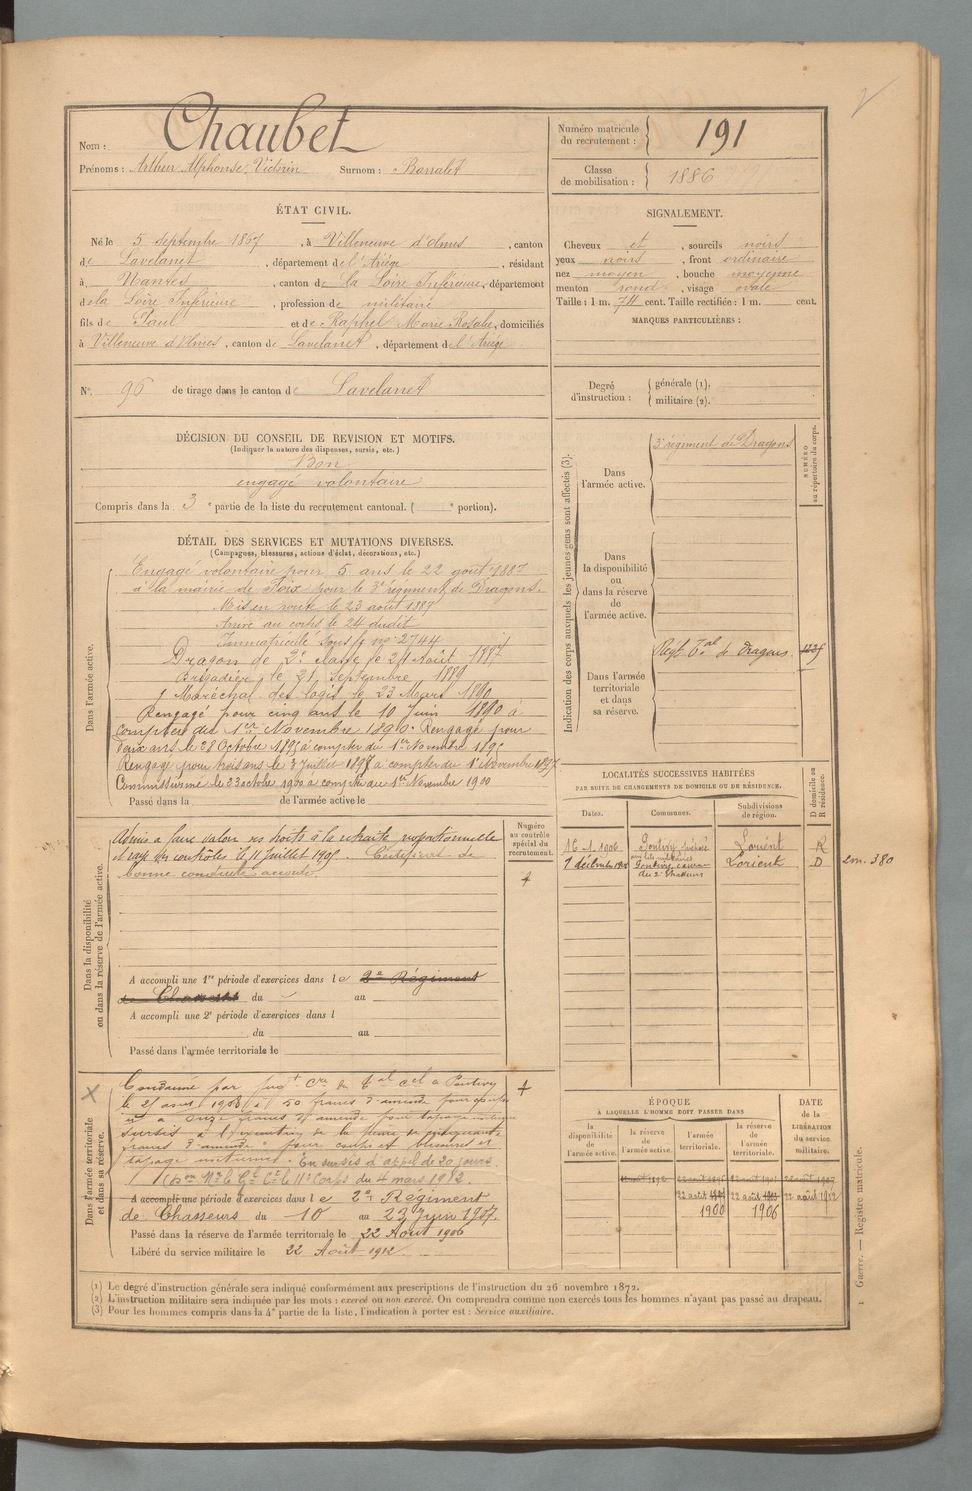 Nom : Chaubet
Prénoms : Arthur Alphonse, Victorin Surnom : Barralet
Numéro matricule du recrutement : 191
Classe de mobilisation : 1886
ÉTAT CIVIL.
Né le 5 septembre 1867, à Villeneuve d'olmes, canton
de Lavelanet, département de l'Ariège, résidant
à Nantes, canton de la Loire Inférieure, département
de la Loire Inférieure, profession de militaire
fils de Paul et de Raphel Marie Rosalie, domiciliés
à Villeneuve d'Olmes, canton de Lavelanet, département de l'Ariège
SIGNALEMENT.
Cheveux et, sourcils noirs
yeux noirs, front ordinaire
nez moyen, bouche moyenne
menton rond, visage ovale
Taille : 1 m. 74 cent. Taille rectifiée : 1 m. cent.
MARQUES PARTICULIÈRES :
N° 96 de tirage dans le canton de Lavelanet
Degré d'instruction : générale (1).
militaire (2).
DÉCISION DU CONSEIL DE REVISION ET MOTIFS.
(Indiquer la nature des dispenses, sursis, etc.)
Bon
engagé volontaire
Compris dans la 3e partie de la liste du recrutement cantonal. ( e portion).
DÉTAIL DES SERVICES ET MUTATIONS DIVERSES.
(Campagnes, blessures, actions d'éclat, décorations, etc.)
Dans l'armée active.
Engagé volontaire pour 5 ans le 22 août 1887
à la mairie de Foix pour le 3e régiment de Dragons.
Mis en route le 23 août 1887
Arrivé au corps le 24 dudit
Immatriculé sous le no 2744
Dragon de 2e classe le 24 Août 1887
Brigadier le 21 Septembre 1889
Maréchal des logis le 23 Mars 1890
Rengagé pour cinq ans le 10 Juin 1890 à
compter du 1er Novembre 1890. Rengagé pour
deux ans le 28 Octobre 1895 à compter du 1er Novembre 1895
Rengagé pour trois ans le 3 Juillet 1897 à compter du 1er Novembre 1897.
Commissionné le 23 octobre 1900 à compter du 1er Novembre 1900
Passé dans la de l'armée active le
Indication des corps auxquels les jeunes gens sont affectés (3).
NUMÉRO au répertoire du corps.
Dans l'armée active.
3e régiment de Dragons
Dans la disponibilité ou dans la réserve de l'armée active.
Dans l'armée territoriale et dans sa réserve.
de dragons
Dans la disponibilité ou dans la réserve de l'armée active.
Numéro au contrôle spécial du recrutement.
Admis à faire valoir ses droits à la retraite proportionnelle
et rayé des contrôles le 11 Juillet 1905. Certificat de
bonne conduite accordé
A accompli une 1re période d'exercices dans le 2e Régiment
de Chasseurs du au
A accompli une 2e période d'exercices dans l
du au
Passé dans l'armée territoriale le
LOCALITÉS SUCCESSIVES HABITÉES
PAR SUITE DE CHANGEMENTS DE DOMICILE OU DE RÉSIDENCE.
Dates. Communes. Subdivisions de région. D domicile ou R résidence.
16-1-1906 Pontivy Lorient R
Pontivy Lorient D
du 2e chasseurs
2m. 380
Dans l'armée territoriale et dans sa réserve.
Condamné par
50 francs d'amende pour coups
onze francs d'amende pour tapage
sursis à l'exécution de la peine de
francs d'amende pour coups et blessures et
tapage nocturne. En sursis d'appel de 20 jours.
11e Corps du 4 mars 1912.
A accompli une période d'exercices dans le 2e Régiment
de Chasseurs du 10 au 23 Juin 1907.
Passé dans la réserve de l'armée territoriale le 22 Août 1906
Libéré du service militaire le 22 Août 1912
ÉPOQUE
À LAQUELLE L'HOMME DOIT PASSER DANS
la disponibilité de l'armée active. la réserve de l'armée active. l'armée territoriale. la réserve de l'armée territoriale.
DATE de la LIBÉRATION du service militaire.
22 août 22 août 22 août 1912
1900 1906
(1) Le degré d'instruction générale sera indiqué conformément aux prescriptions de l'instruction du 26 novembre 1872.
(2) L'instruction militaire sera indiquée par les mots : exercé ou non exercé. On comprendra comme non exercés tous les hommes n'ayant pas passé au drapeau.
(3) Pour les hommes compris dans la 4e partie de la liste, l'indication à porter est : Service auxiliaire.
1 Guerre. — Registre matricule.